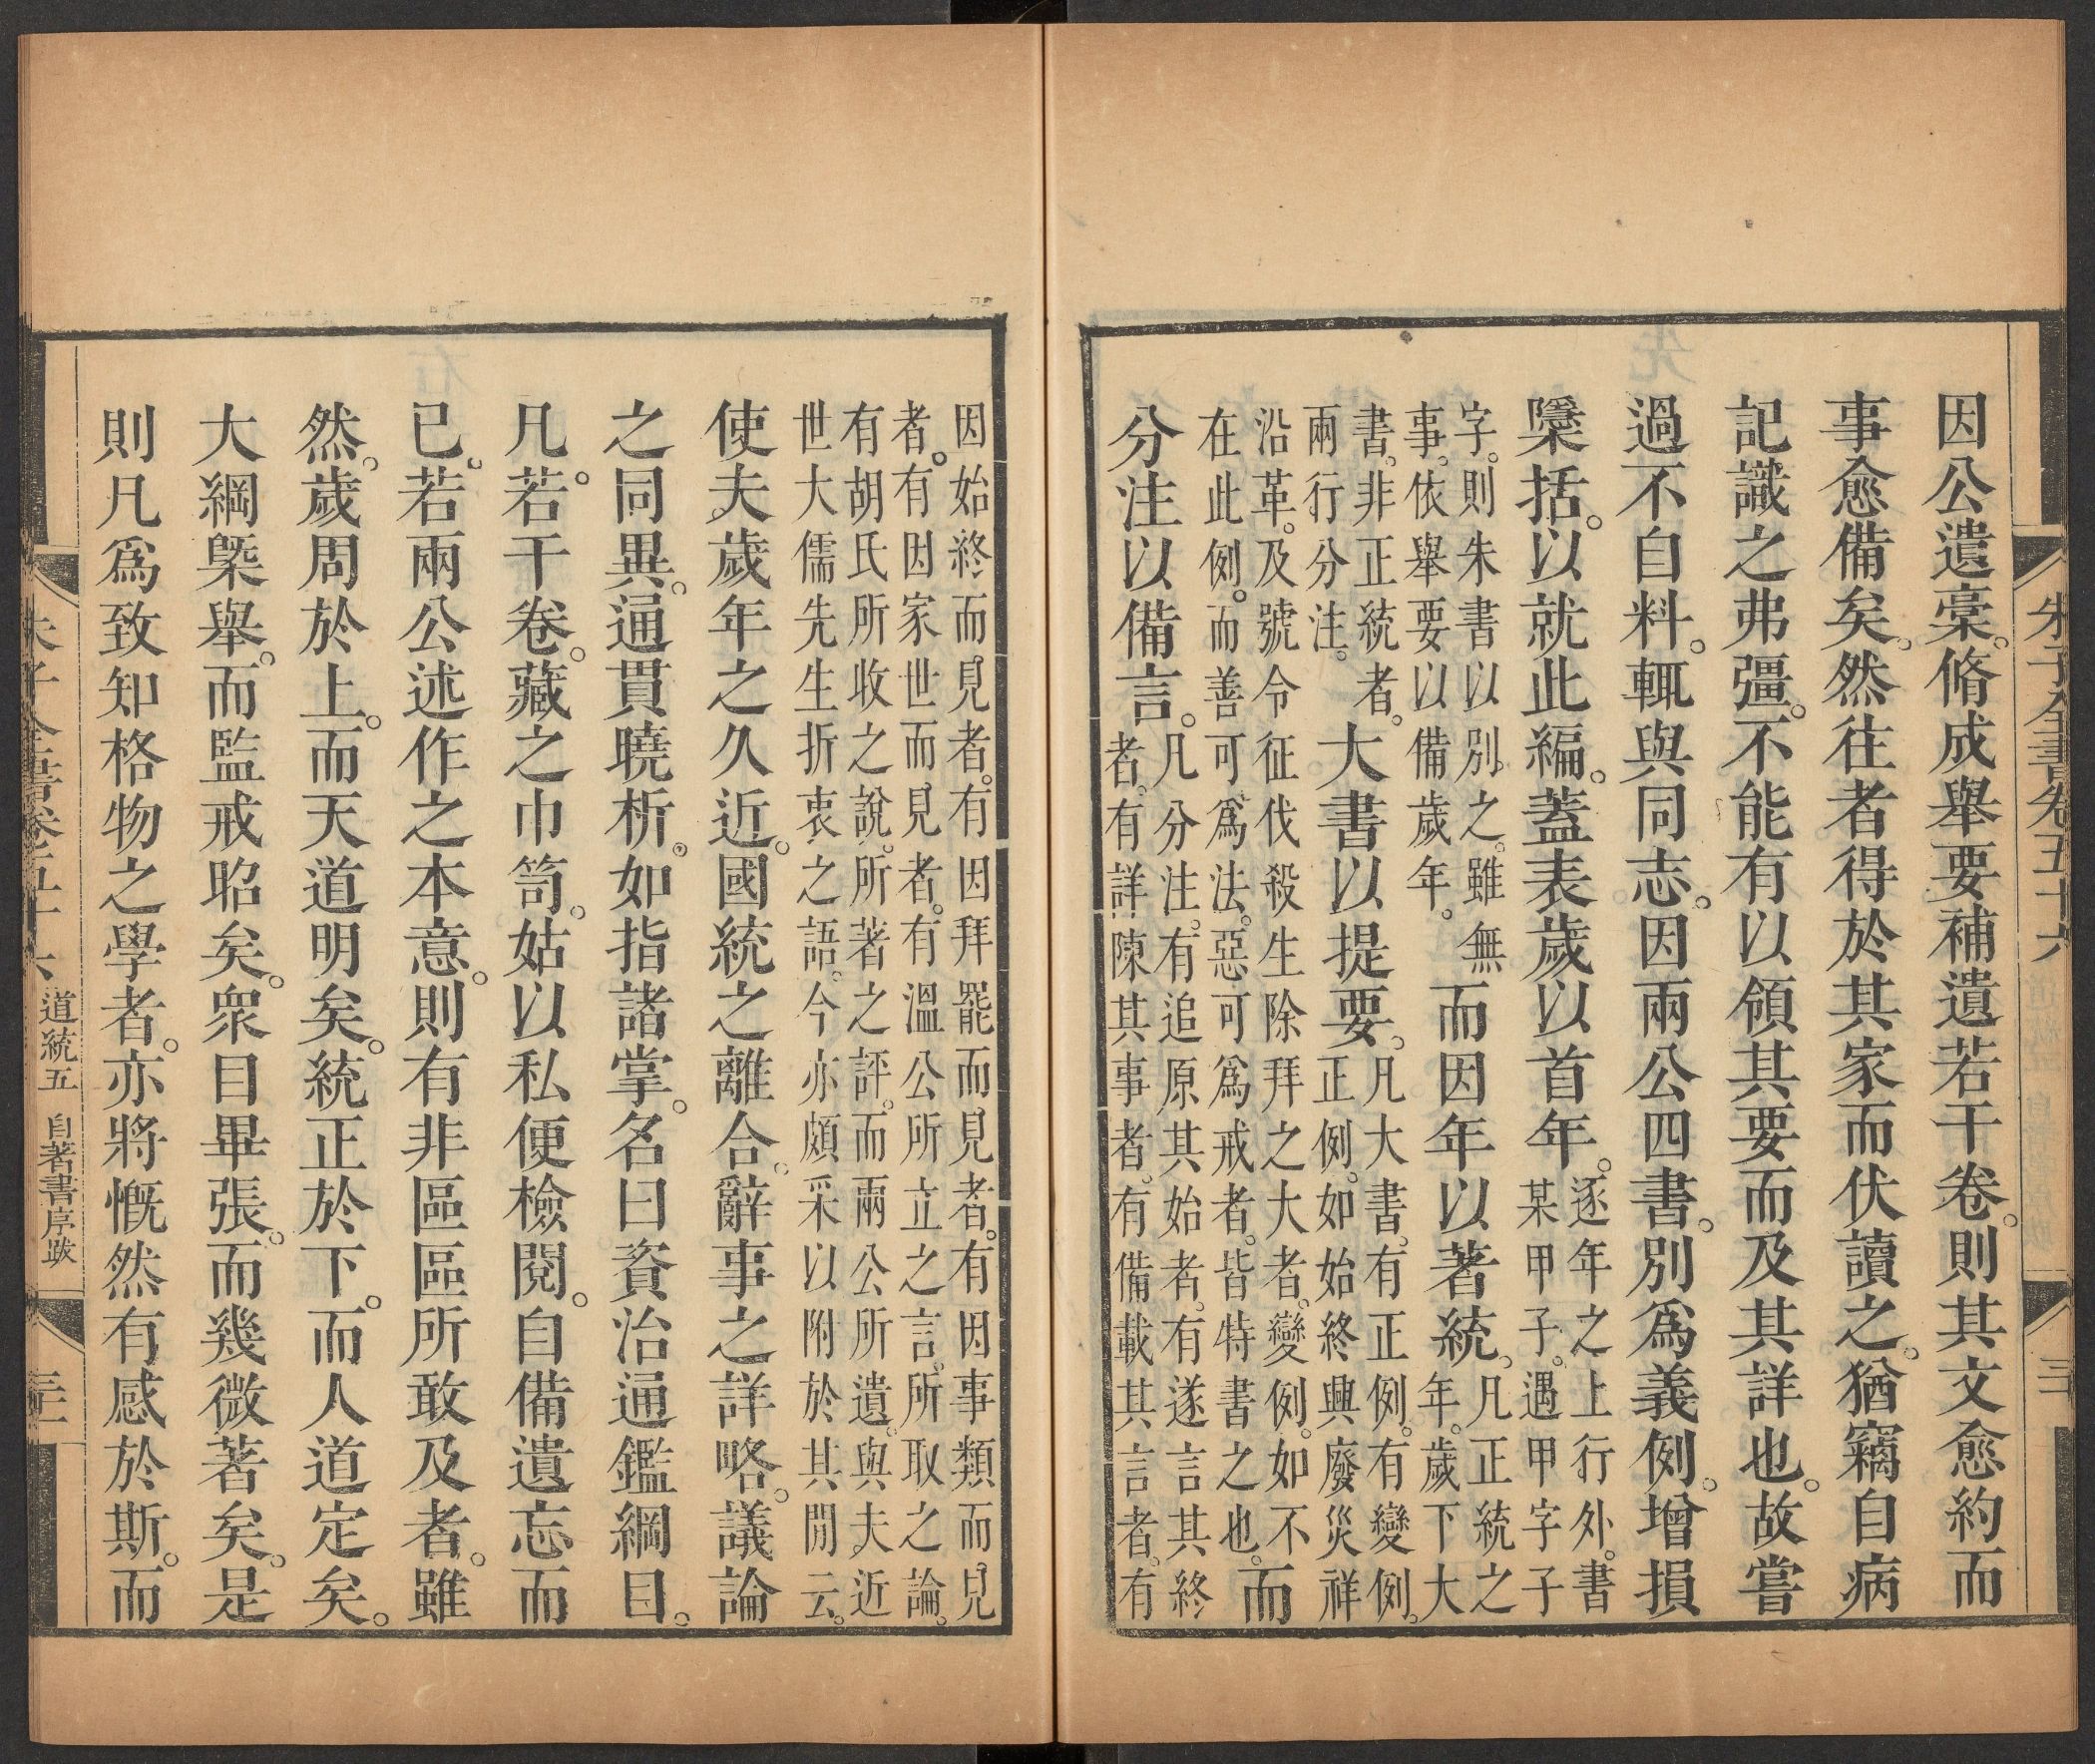 朱子全書卷五十六
三
因公遺稾。脩成舉要補遺若干卷。則其文愈約而
事愈備矣。然往者得於其家而伏讀之。猶竊自病
記識之弗彊。不能有以領其要而及其詳也。故嘗
過不自料。輒與同志。因兩公四書。別爲義例。增損
檃括。以就此編。蓋表歲以首年。逐年之上行外。書某甲子。遇甲字子
字。則朱書以別之。雖無事。依舉要以備歲年。而因年以著統。凡正統之年。歲下大
書。非正統者。兩行分注。大書以提要。凡大書。有正例。有變例。正例。如始終興廢災祥
沿革。及號令征伐殺生除拜之大者。變例。如不在此例。而善可爲法。惡可爲戒者。皆特書之也。而
分注以備言。凡分注。有追原其始者。有遂言其終者。有詳陳其事者。有備載其言者。有
因始終而見者。有因拜罷而見者。有因事類而見者。有因家世而見者。有溫公所立之言。所取之論。
有胡氏所收之說。所著之評。而兩公所遺。與夫近世大儒先生折衷之語。今亦頗采以附於其閒云。
使夫歲年之久近。國統之離合。辭事之詳略。議論
之同異。通貫曉析。如指諸掌。名曰資治通鑑綱目。
凡若干卷。藏之巾笥。姑以私便檢閱。自備遺忘而
已。若兩公述作之本意。則有非區區所敢及者。雖
然。歲周於上。而天道明矣。統正於下。而人道定矣。
大綱槩舉。而監戒昭矣。衆目畢張。而幾微著矣。是
則凡爲致知格物之學者。亦將慨然有感於斯。而
朱子全書卷五十六
道統五 自著書序跋
三